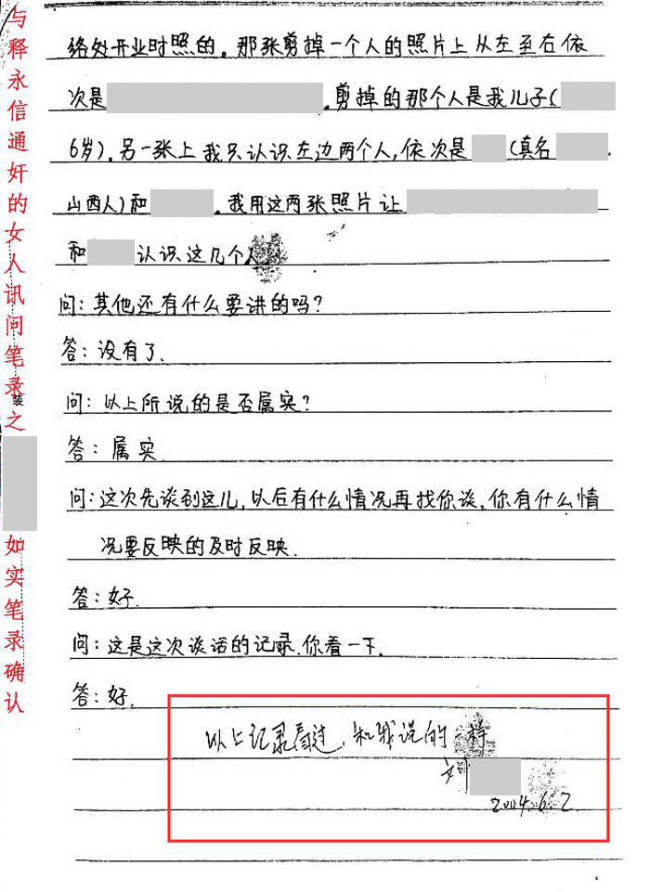 与释永信通奸的女人讯问笔录之
如实笔录确认
装
络处开业时照的。那张剪掉一个人的照片上从左至右依
次是 .剪掉的那个人是我儿子(
6岁).另一张上我只认识左边两个人,依次是 (真名 .
山西人)和 .我用这两张照片让
和 认识这几个人
问:其他还有什么要讲的吗?
答:没有了.
问:以上所说的是否属实?
答:属实
问:这次先谈到这儿,以后有什么情况再找你谈,你有什么情
况要反映的及时反映.
答:好.
问:这是这次谈话的记录.你看一下.
答:好.
以上记录看过,和我说的一样
刘
2004.6.2